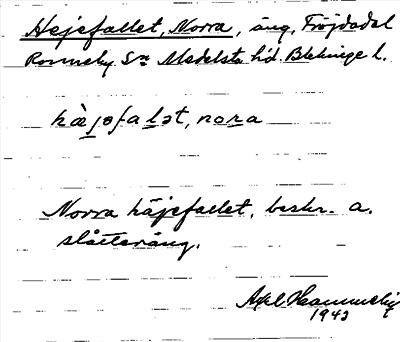 Hejefallet, Norra, äng, Fröjdadal
Ronneby Sn Medelsta hd. Blekinge l.
hæjefalet, nora
Norra häjefallet, beskr. a.
slåtteräng.
Axel
1943